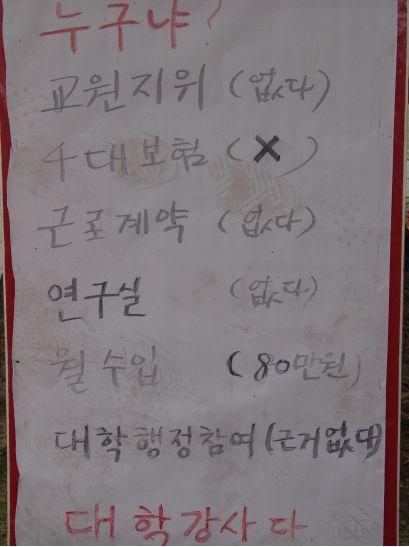 누구냐?
교원지위 (없다)
4대보험 (X)
근로계약 (없다)
연구실 (없다)
월 수입 (80만원)
대학행정참여 (근거없다)
대학강사다.